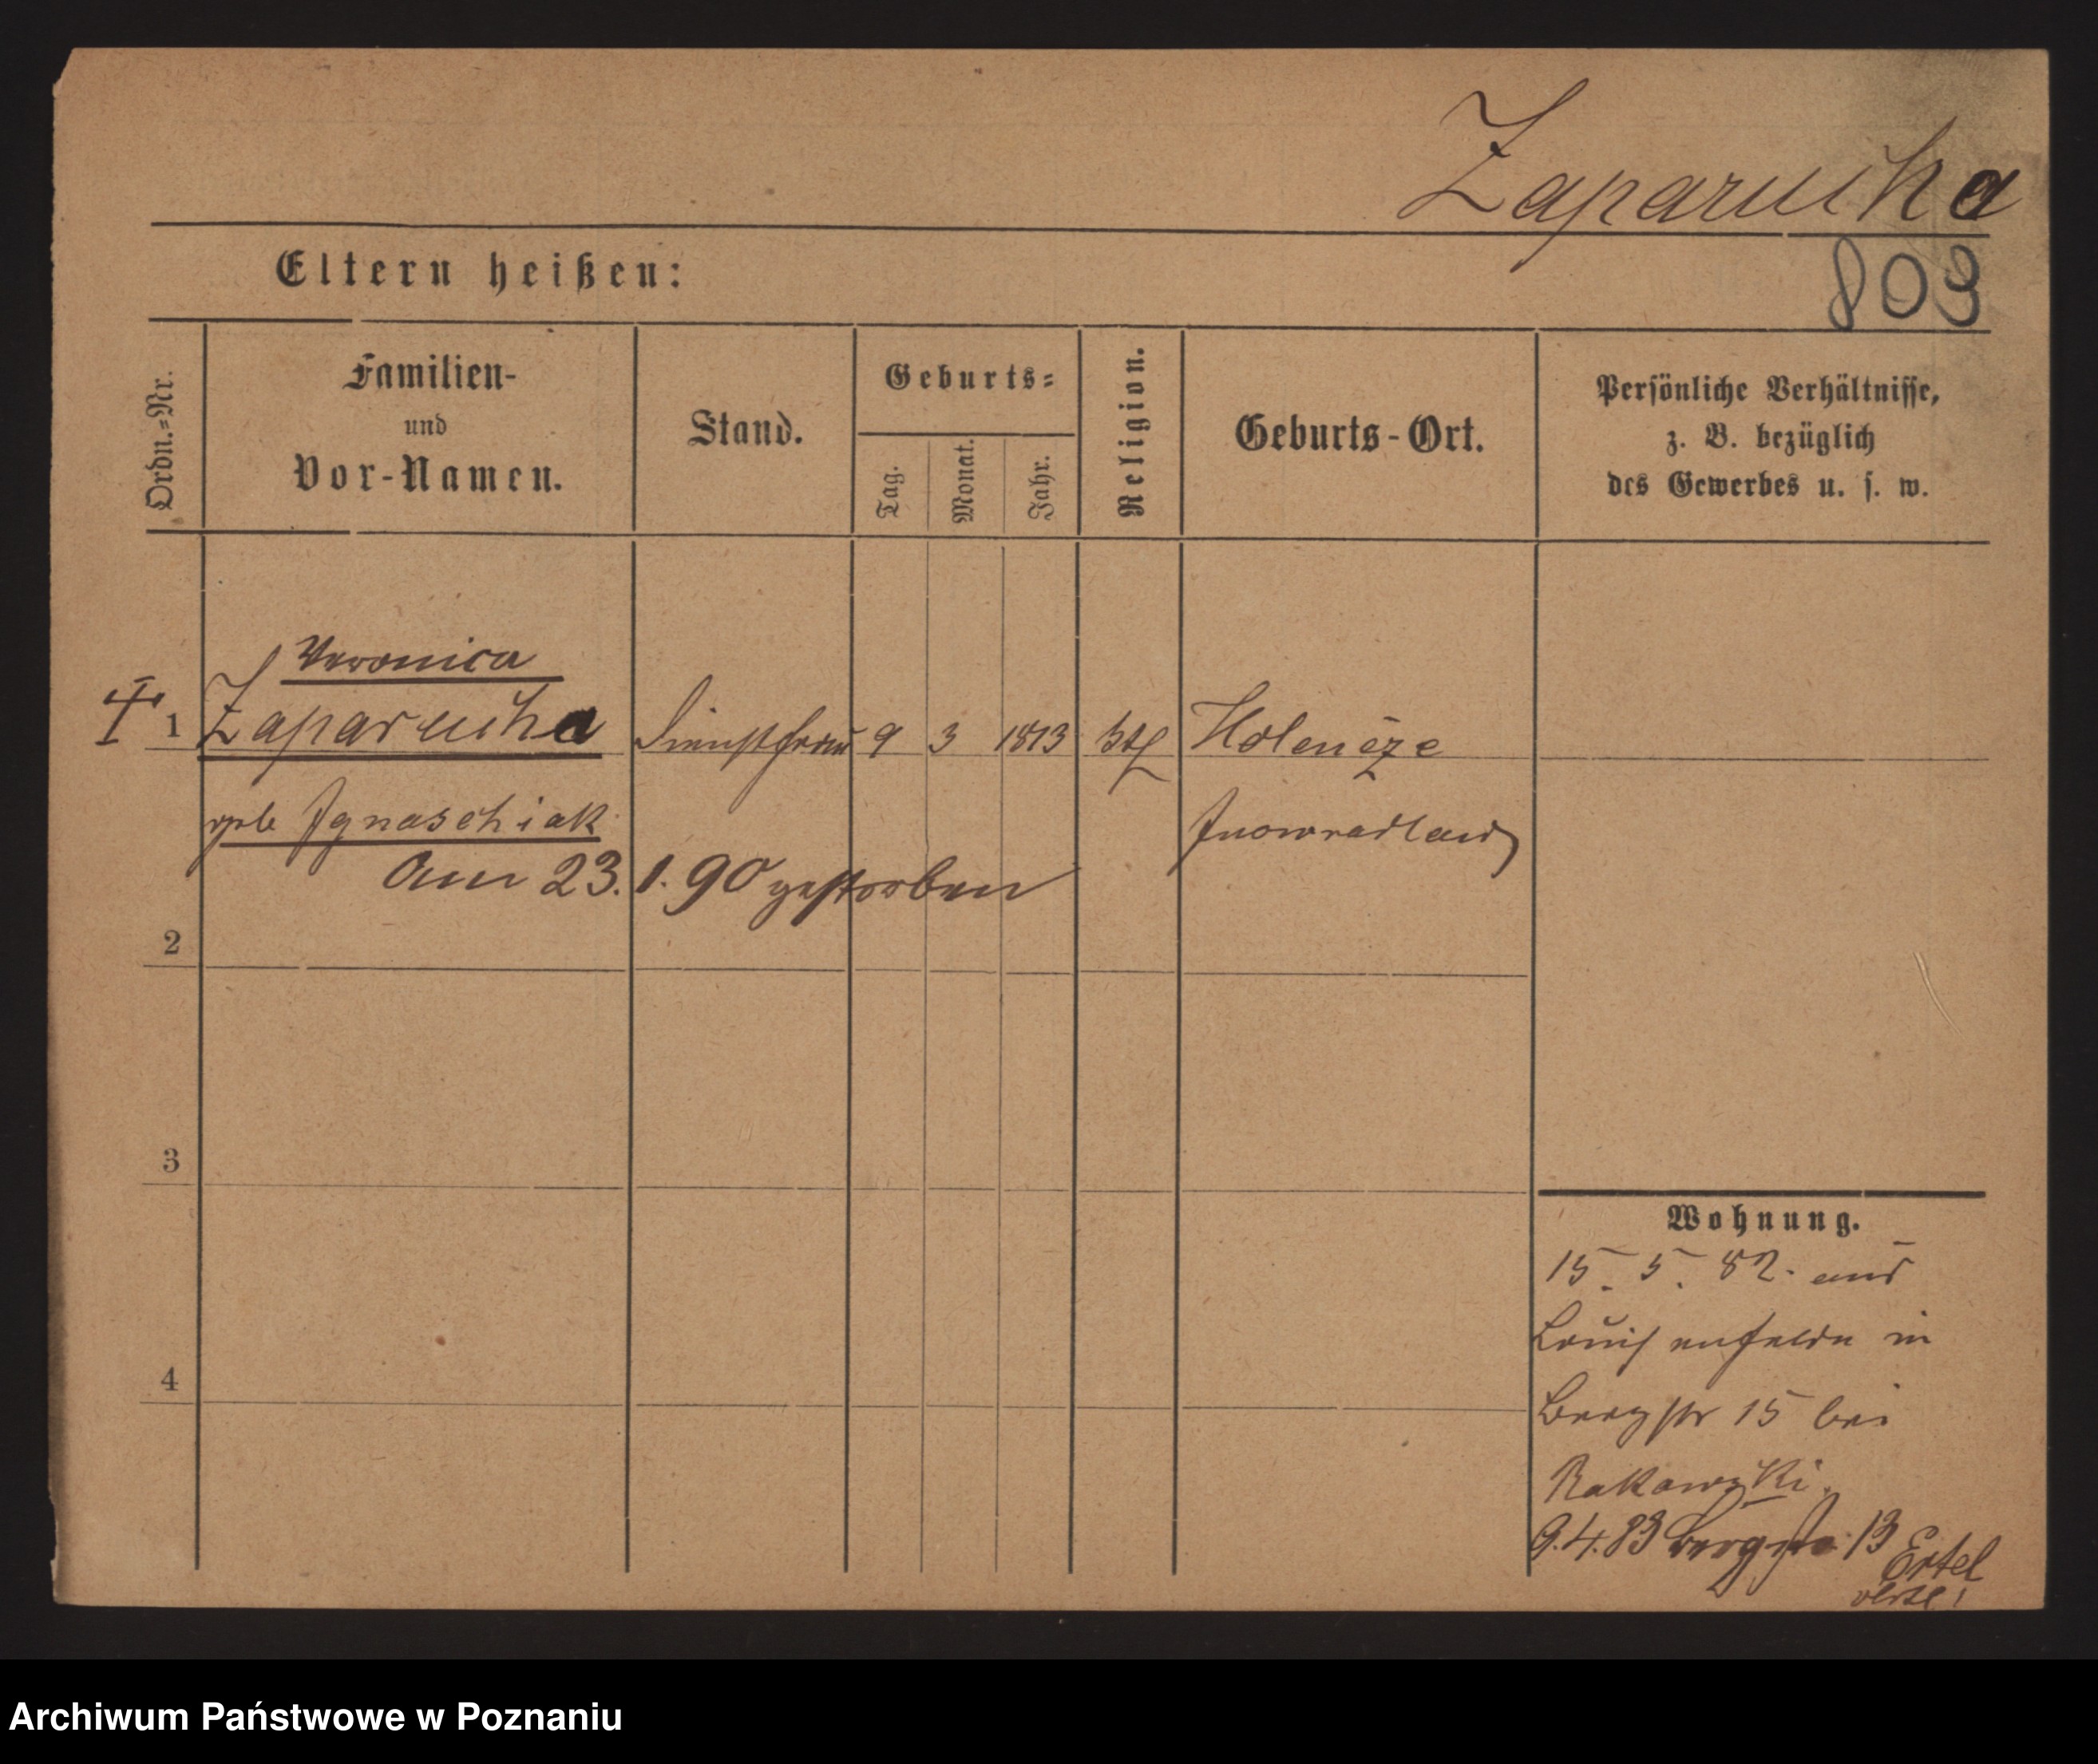 Zaparucha
803
Eltern heißen:
Ordn.=Nr.
Familien-
und
Vor-Namen.
Stand.
Geburts=
Tag.
Monat.
Jahr.
Religion.
Geburts-Ort.
Persönliche Verhältnisse,
z. B. bezüglich
des Gewerbes u. s. w.
Veronica
1 Zaparucha Dienstfrau 9 3 1813 ktl
geb Ignaschiak
Inowradlaw
Am 23. 1. 90 gestorben
2
3
4
Wohnung.
15. 5. 82. aus
Louisenfelde in
Bergstr 15 bei
Rakowski.
9.4.83 Bergstr. 13 Ertel